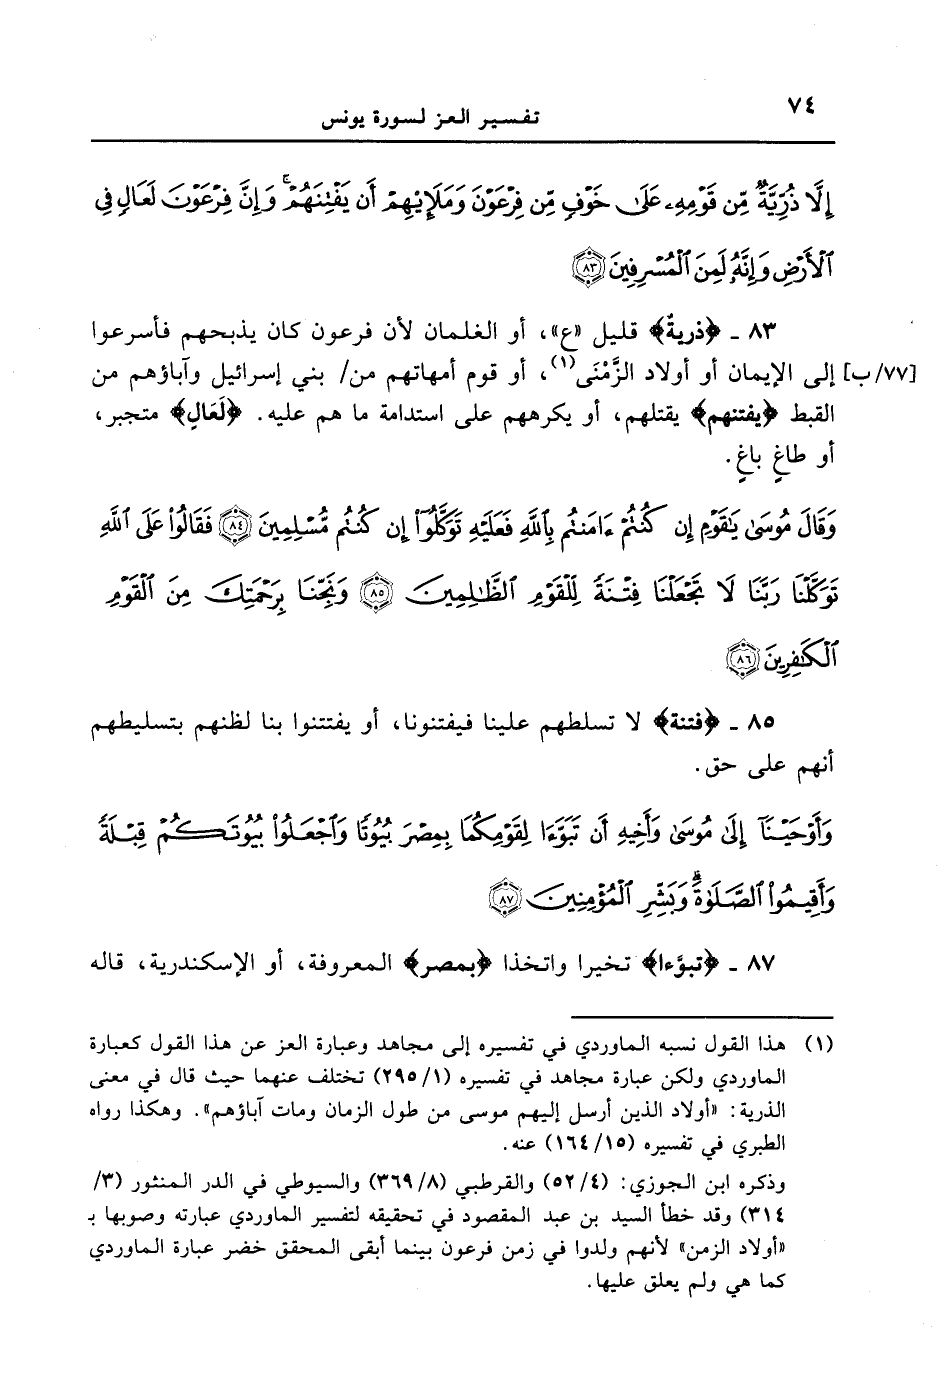 ٧٤
تفسير العز لسورة يونس
إِلَّا ذُرِّيَّةٌ مِّن قَوْمِهِۦ عَلَىٰ خَوْفٍ مِّن فِرْعَوْنَ وَمَلَإِيْهِمْ أَن يَفْتِنَهُمْ ۚ وَإِنَّ فِرْعَوْنَ لَعَالٍ فِى
ٱلْأَرْضِ وَإِنَّهُۥ لَمِنَ ٱلْمُسْرِفِينَ ﴿٨٣﴾
٨٣ ـ ﴿ذريةٌ﴾ قليل «ع»، أو الغلمان لأن فرعون كان يذبحهم فأسرعوا
[٧٧/ب] إلى الإيمان أو أولاد الزَّمْنَى(١)، أو قوم أمهاتهم من/ بني إسرائيل وآباؤهم من
القبط ﴿يفتنهم﴾ يقتلهم، أو يكرههم على استدامة ما هم عليه. ﴿لَعَالٍ﴾ متجبر،
أو طاغٍ باغٍ.
وَقَالَ مُوسَىٰ يَٰقَوْمِ إِن كُنتُمْ ءَامَنتُم بِٱللَّهِ فَعَلَيْهِ تَوَكَّلُوٓا۟ إِن كُنتُم مُّسْلِمِينَ ﴿٨٤﴾ فَقَالُوا۟ عَلَى ٱللَّهِ
تَوَكَّلْنَا رَبَّنَا لَا تَجْعَلْنَا فِتْنَةً لِّلْقَوْمِ ٱلظَّٰلِمِينَ ﴿٨٥﴾ وَنَجِّنَا بِرَحْمَتِكَ مِنَ ٱلْقَوْمِ
ٱلْكَٰفِرِينَ ﴿٨٦﴾
٨٥ ـ ﴿فتنة﴾ لا تسلطهم علينا فيفتنونا، أو يفتتنوا بنا لظنهم بتسليطهم
أنهم على حق.
وَأَوْحَيْنَآ إِلَىٰ مُوسَىٰ وَأَخِيهِ أَن تَبَوَّءَا لِقَوْمِكُمَا بِمِصْرَ بُيُوتًا وَٱجْعَلُوا۟ بُيُوتَكُمْ قِبْلَةً
وَأَقِيمُوا۟ ٱلصَّلَوٰةَ ۗ وَبَشِّرِ ٱلْمُؤْمِنِينَ ﴿٨٧﴾
٨٧ ـ ﴿تبوَّءا﴾ تخيرا واتخذا ﴿بمصر﴾ المعروفة، أو الإسكندرية، قاله
(١) هذا القول نسبه الماوردي في تفسيره إلى مجاهد وعبارة العز عن هذا القول كعبارة
الماوردي ولكن عبارة مجاهد في تفسيره (٢٩٥/١) تختلف عنهما حيث قال في معنى
الذرية: «أولاد الذين أرسل إليهم موسى من طول الزمان ومات آباؤهم». وهكذا رواه
الطبري في تفسيره (١٦٤/١٥) عنه.
وذكره ابن الجوزي: (٥٢/٤) والقرطبي (٣٦٩/٨) والسيوطي في الدر المنثور (٣/
٣١٤) وقد خطأ السيد بن عبد المقصود في تحقيقه لتفسير الماوردي عبارته وصوبها بـ
«أولاد الزمن» لأنهم ولدوا في زمن فرعون بينما أبقى المحقق خضر عبارة الماوردي
كما هي ولم يعلق عليها.